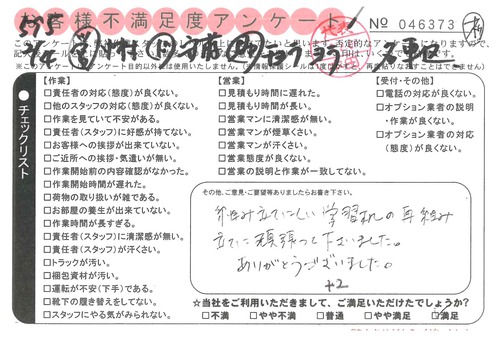 お客様不満足度アンケート
No 046373
チェックリスト
【作業】
□責任者の対応(態度)が良くない。
□他のスタッフの対応(態度)が良くない。
□作業を見ていて不安がある。
□責任者(スタッフ)に好感が持てない。
□お客様への挨拶が出来ていない。
□ご近所への挨拶・気遣いが無い。
□作業開始前の内容確認がなかった。
□作業開始時間が遅れた。
□荷物の取り扱いが雑である。
□お部屋の養生が出来ていない。
□作業時間が長すぎる。
□責任者(スタッフ)に清潔感が無い。
□責任者(スタッフ)が汗くさい。
□トラックが汚い。
□梱包資材が汚い。
□運転が不安(下手)である。
□靴下の履き替えをしてない。
□スタッフにやる気がみられない。
【営業】
□見積もり時間に遅れた。
□見積もり時間が長い。
□営業マンに清潔感が無い。
□営業マンが煙草くさい。
□営業マンが汗くさい。
□営業態度が良くない。
□営業の説明と作業が一致してない。
【受付・その他】
□電話の対応が良くない。
□オプション業者の説明
・作業が良くない。
□オプション業者の対応
(態度)が良くない。
その他、ご意見・ご要望等ありましたらお書き下さい。
組み立てにくい学習机の再組み
立てに頑張って下さいました。
ありがとうございました。
+2
☆当社をご利用いただきまして、ご満足いただけたでしょうか?
□不満 □やや不満 □普通 □やや満足 □満足